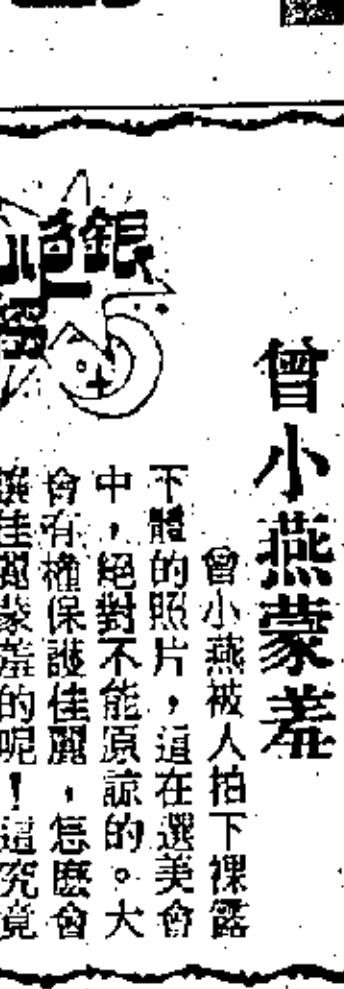 曾小燕蒙羞
曾小燕被人拍下裸露
下體的照片，這在選美會
中，絕對不能原諒的。大
會有權保護佳麗，怎麼會
讓佳麗蒙羞的呢！這究竟
銀色